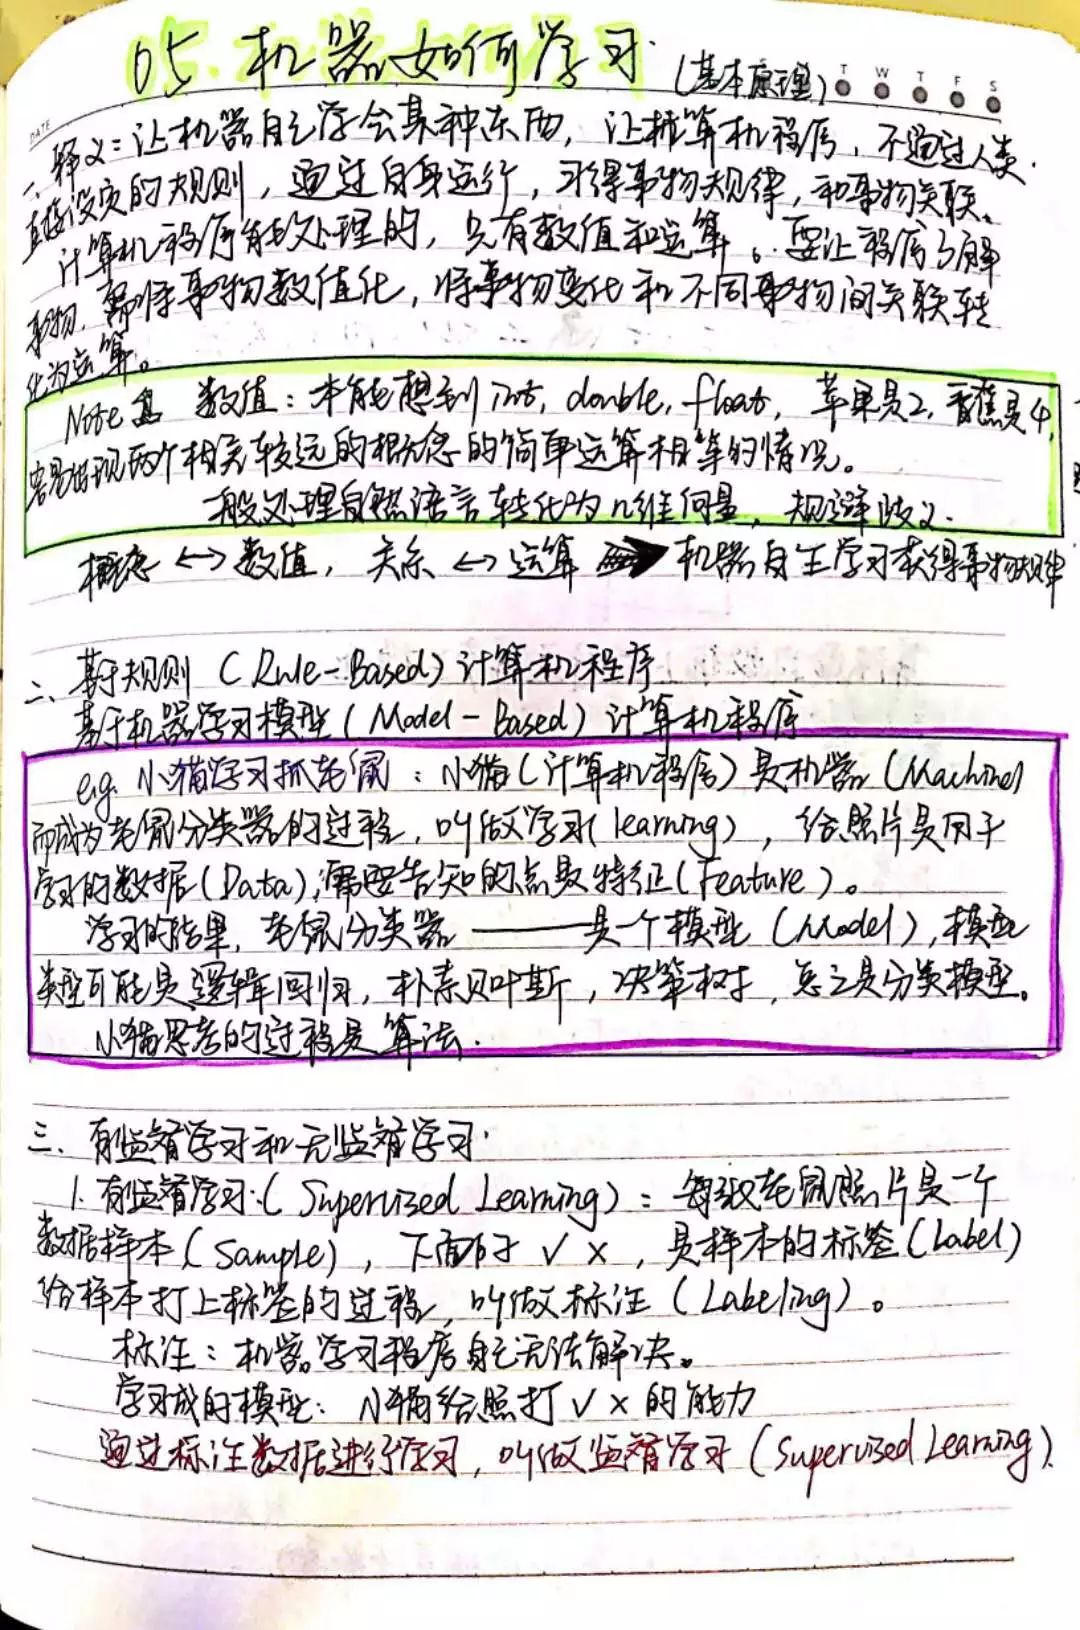 05. 机器如何学习 (基本原理)
T W T F S
DATE
一、释义：让机器自己学会某种东西，让计算机程序，不通过人类
直接设定的规则，通过自身运行，习得事物规律，和事物关联。
计算机程序能处理的，只有数值和运算。要让程序了解
事物，需将事物数值化，将事物变化和不同事物间关联转
化为运算。
Note 数值：本能想到 int, double, float, 苹果是2, 香蕉是4,
容易出现两个相差较远的概念的简单运算相等的情况。
一般处理自然语言转化为n维向量，规避歧义.
概念 ↔ 数值，关系 ↔ 运算 ➡ 机器自主学习获得事物规律
二、基于规则 (Rule-Based) 计算机程序
基于机器学习模型 (Model-Based) 计算机程序
e.g. 小猫学习抓老鼠：小猫(计算机程序)是机器 (Machine)
而成为老鼠分类器的过程，叫做学习(learning)，给照片是用于
学习的数据(Data), 需要告知的点是特征(Feature)。
学习的结果，老鼠分类器 —— 是一个模型 (Model), 模型
类型可能是逻辑回归，朴素贝叶斯，决策树，总之是分类模型。
小猫思考的过程是算法.
三、有监督学习和无监督学习.
1. 有监督学习:( Supervised Learning)：每张老鼠照片是一个
数据样本(Sample)，下面的 √ ×，是样本的标签(Label)
给样本打上标签的过程，叫做标注 (Labeling)。
标注：机器学习程序自己无法解决。
学习成的模型：小猫给照打 √ × 的能力
通过标注数据进行学习，叫做监督学习 (Supervised Learning).